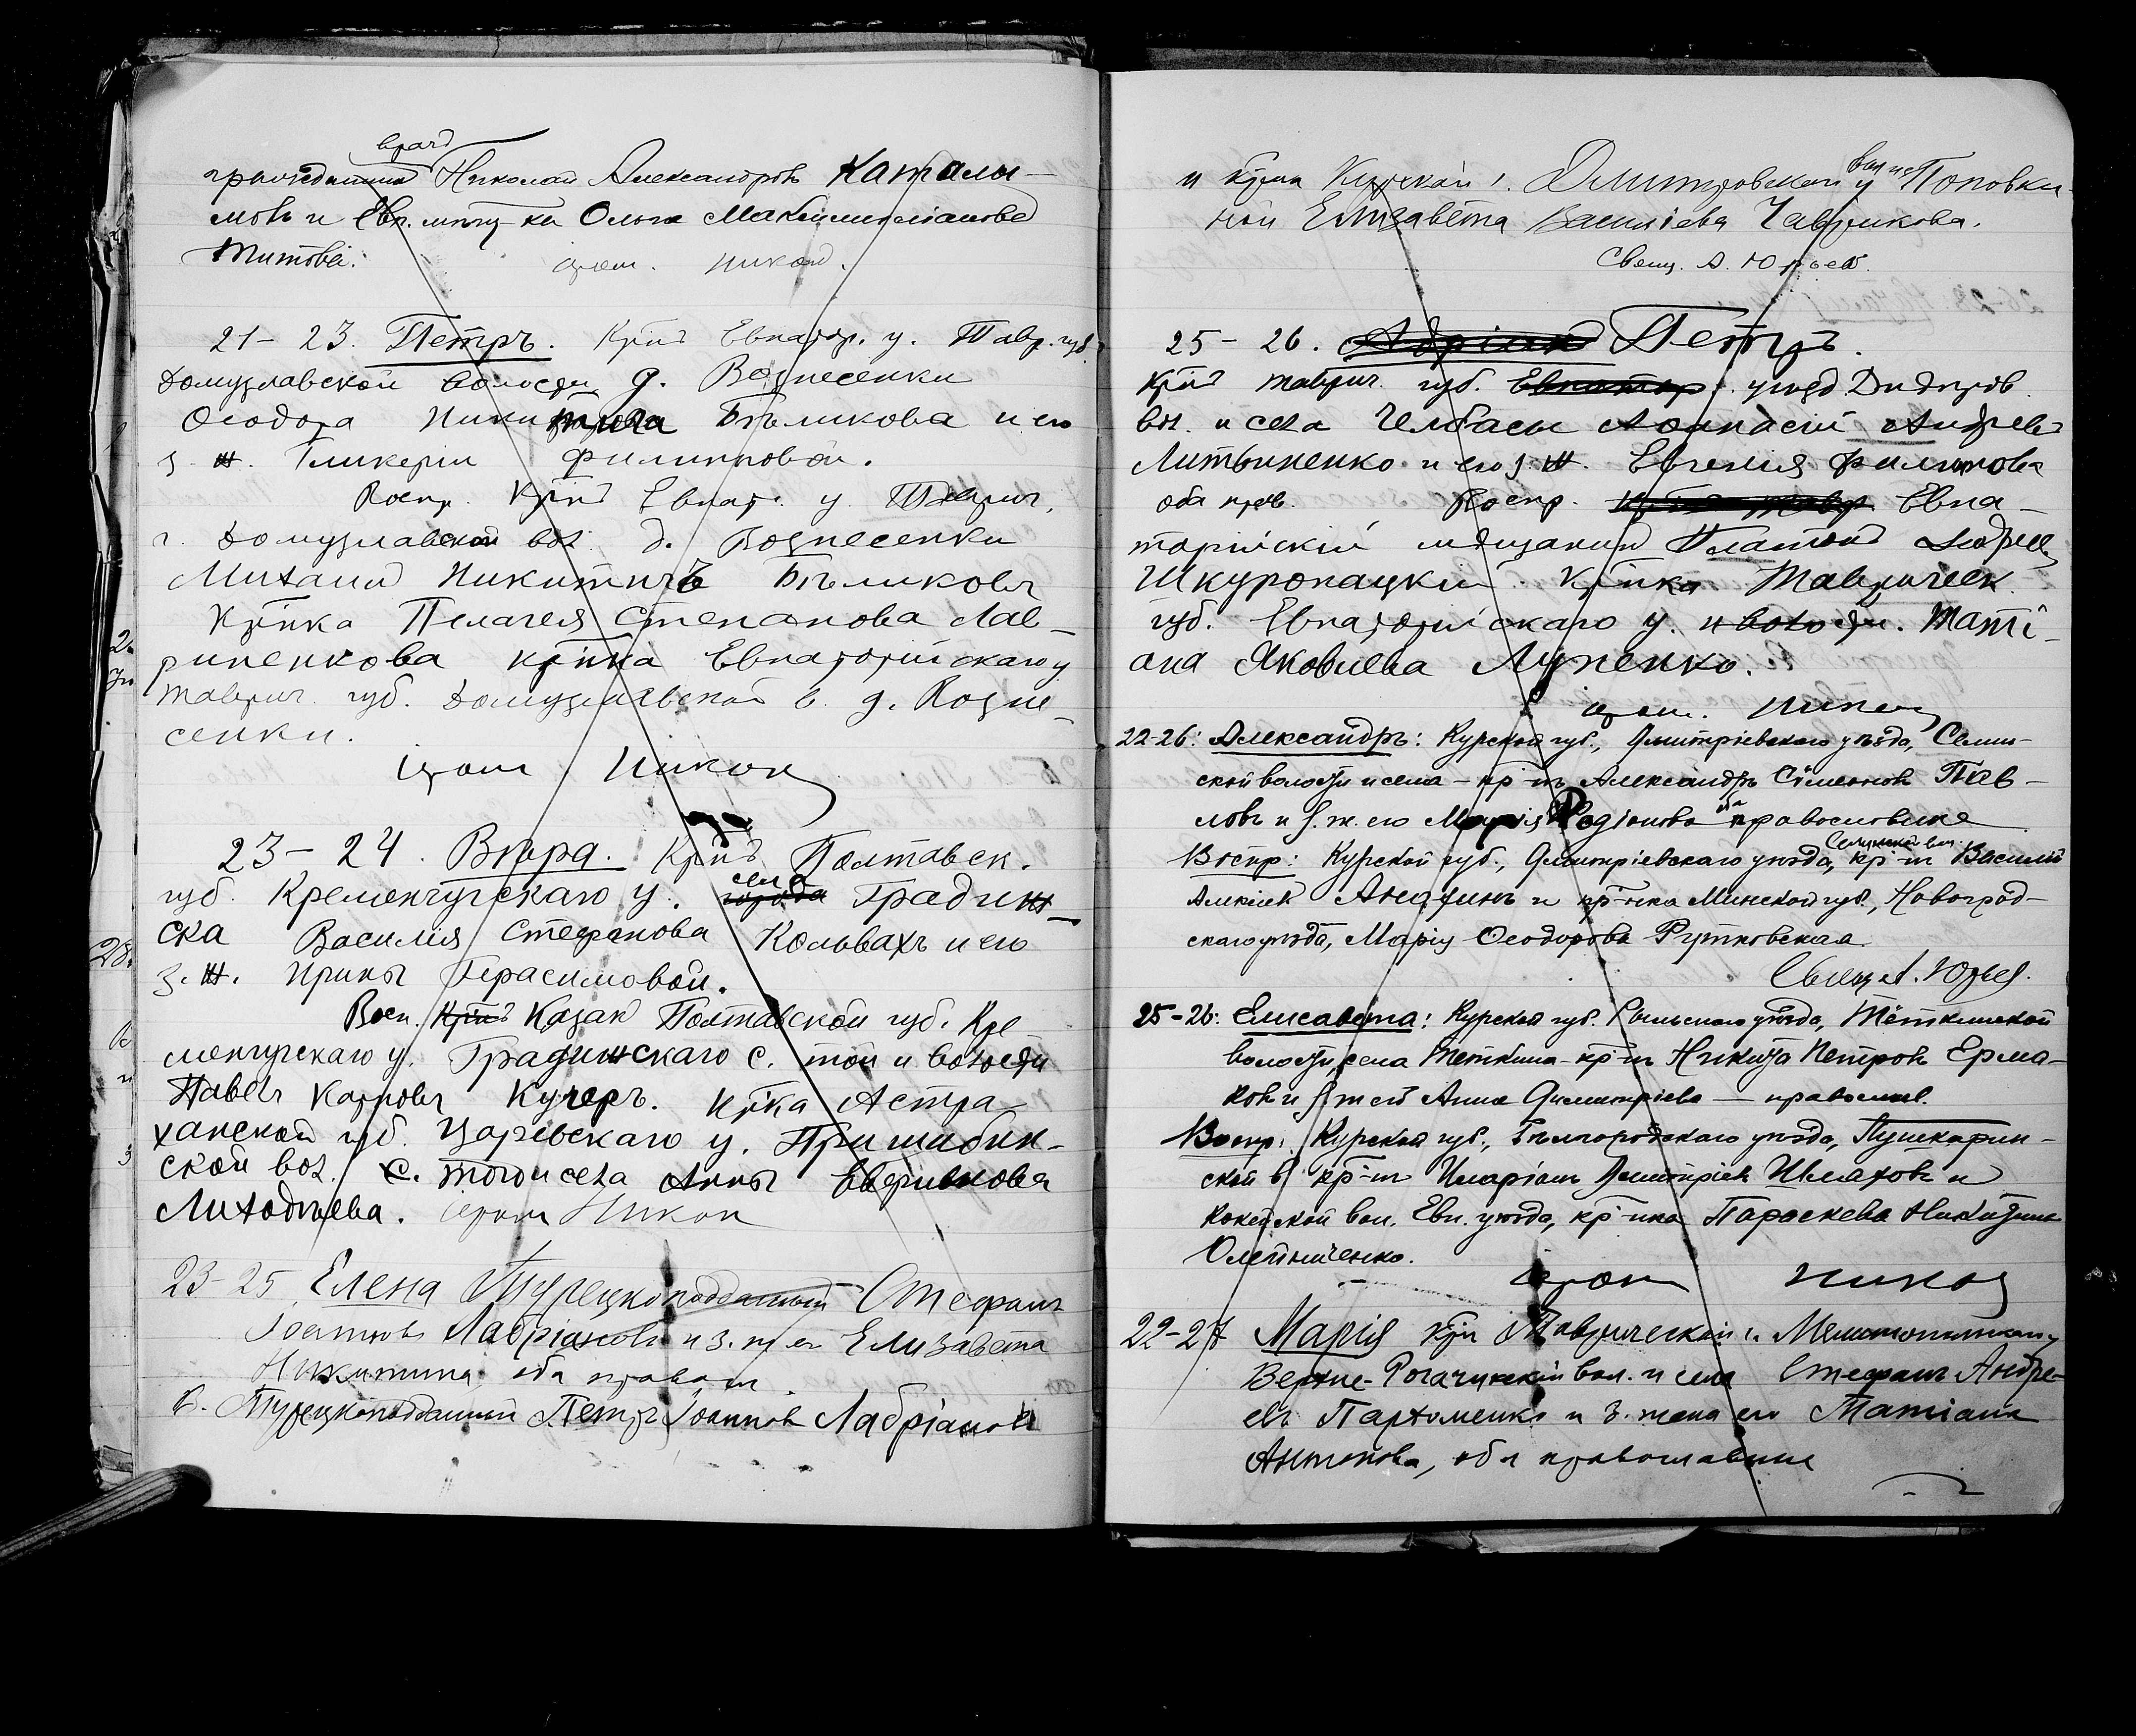 врачъ
гражданинъ Николай Александровъ Каталы-
мовъ и Евп. мѣщ-ка Ольга Максимиліанова
Титова. прот. Никон.
21-23. Петръ. Кр-нъ Евпатор. у. Тавр. губ.
Домузлавской волости д. Вознесенки
Ѳеодора Никитича Бѣликова и его
з. ж. Гликеріи Филипповой.
Воспр. Кр-нъ Евпат. у. Таврич.
г. Домузлавской вол. д. Вознесенки
Михаилъ Никитичъ Бѣликовъ
Кр-нка Пелагея Степанова Лав-
риненкова кр-нка Евпаторійскаго у
Таврич. губ. Домузлавской в. д. Возне-
сенки.
прот Никон
23-24. Вѣра. Кр-нъ Полтавск.
губ. Кременчугскаго у. города села Градиж-
ска Василія Стефанова Кольвахъ и его
з. ж. Ирины Герасимовой.
Восп. Кр-нъ Казак Полтавской губ. Кре-
менчугскаго у. Градижскаго с. той и волости
Павелъ Карповъ Кучеръ. Кр-ка Астра-
ханской губ. Царевскаго у. Пришибин-
ской вол. с. того и села Анны
Лиходѣева. прот Никон
23-25 Елена Турецкоподданный Стефанъ
Іоанновъ Лабріановъ и з. ж. ег Елизавета
Никитина оба правосл.
В. Турецкоподданный Петръ Іоанновъ Лабріановъ
и кр-нка Курской г. Дмитровской у вол. Поповки-
ной Елизавета Василіева Гаврикова.
Свящ. А. Юрьев.
25-26. Адріанъ Петръ.
Кр-нъ таврич. губ. Евпатор. уезд. Днѣпров.
вол. и села Челбасы Аѳанасій Андреевъ
Литвиненко и его з. ж. Евгенія Филипова
оба прав. Воспр. Евпа-
торійскій мѣщанинъ Платонъ Андреев
Шкуропацкій. Кр-нка Таврическ.
губ. Евпаторійскаго у. и волости. Таті-
ана Яковлева Лупенко.
прот. Никон
22-26: Александръ: Курской губ., Дмитріевскаго уѣзда, Селин-
ской волости и села - кр-нъ Александръ Сѵмеоновъ Пав-
ловъ и з. ж. его Марія Родіонова оба православные
Воспр: Курской губ., Дмитріевскаго уѣзда, Селинской вол. кр-нъ Василій
Алексѣев и кр-нка Минской губ., Новоград-
скаго уѣзда, Марія Ѳеодорова Рутковская.
Свящ А. Юрьев.
25-26: Елисавета: Курской губ. Рыльскаго уѣзда, Тёткинской
волости, села Теткина - кр-нъ Никита Петровъ Ерма-
ковъ и з. ж его Анна Димитріева — православ.
Воспр: Курской губ., Бѣлгородскаго уѣзда, Пушкарин-
ской в. кр-нъ Иларіонъ Димитріев Шлаховъ и
Кокейской вол. Евп. уѣзда, кр-нка Параскева Никитина
Олейниченко.
прот Никон
22-27 Марія Кр-н Таврической г. Мелитопольскаго у
Верхне-Рогачикской вол. и села Стефанъ Андре-
евъ Пархоменко и з. жена его Татіана
Антонова, оба православные